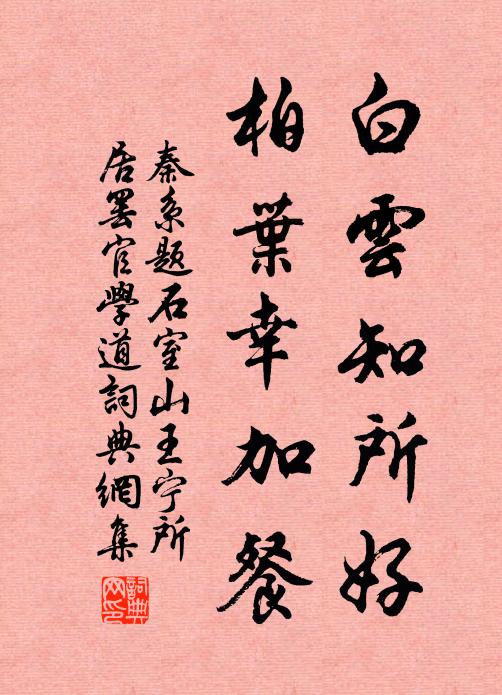 白雲知所好
柏葉幸加餐
秦系題石室山王宁所
居罢官學道詞典網集
詞典網印